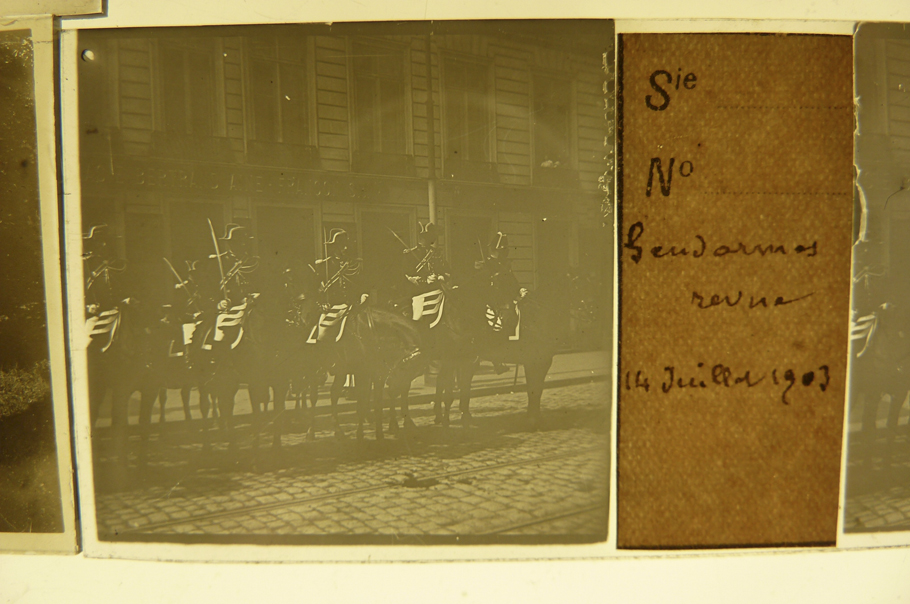 Sie
No
Gendarmes
revue
14 Juillet 1903